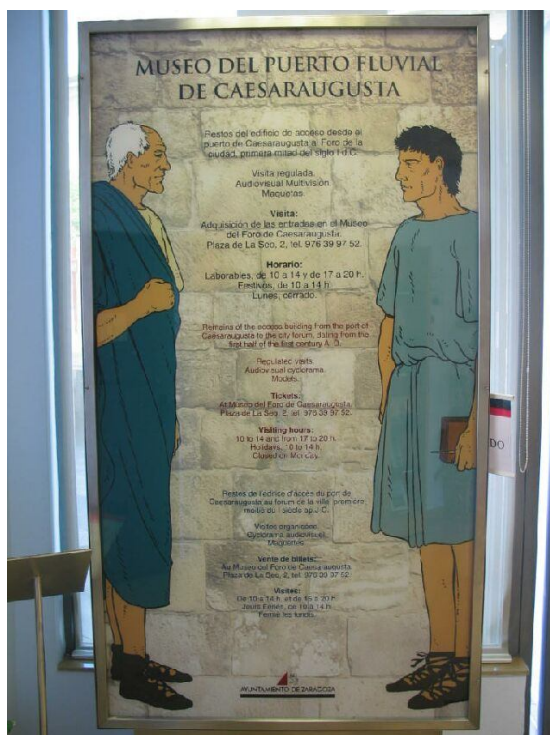 MUSEO DEL PUERTO FLUVIAL
DE CAESARAUGUSTA
Restos del edificio de acceso desde el
puerto de Caesaraugusta al Foro de la
ciudad, primera mitad del siglo I d.C.
Visita regulada.
Audiovisual Multivisión
Maquetas
Visita:
Adquisición de las entradas en el Museo
del Foro de Caesaraugusta.
Plaza de La Seo, 2, tel. 976 39 97 52.
Horario:
Laborables, de 10 a 14 y de 17 a 20 h.
Festivos, de 10 a 14 h.
Lunes, cerrado.
Remains of the access building from the port of
Caesaraugusta to the city forum, dating from the
first half of the first century A. D.
Regulated visits.
Audiovisual cyclorama.
Models.
Tickets:
At Museo del Foro de Caesaraugusta.
Plaza de La Seo, 2, tel. 976 39 97 52.
Visiting hours:
10 to 14 and from 17 to 20 h.
Holidays, 10 to 14 h.
Closed on Monday.
Restes de l'édifice d'accès du port de
Caesaraugusta au forum de la ville, première
moitié du I siècle ap.J.C.
Visites organisées.
Cyclorama audiovisuel.
Maquettes.
Vente de billets:
Au Museo del Foro de Caesaraugusta.
Plaza de La Seo, 2, tel. 976 39 97 52
Visites:
De 10 a 14 h. et de 20 h.
Jours Fériés, de 10 a 14 h.
Fermé les lundis.
AYUNTAMIENTO DE ZARAGOZA
DO